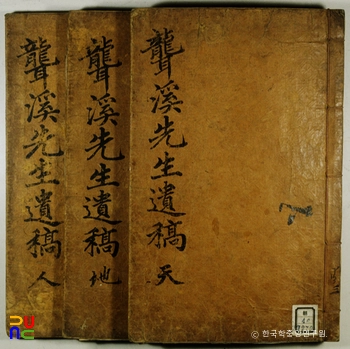 聾溪先生遺稿 天
聾溪先生遺稿 地
聾溪先生遺稿 人
ⓒ 한국학중앙연구원.